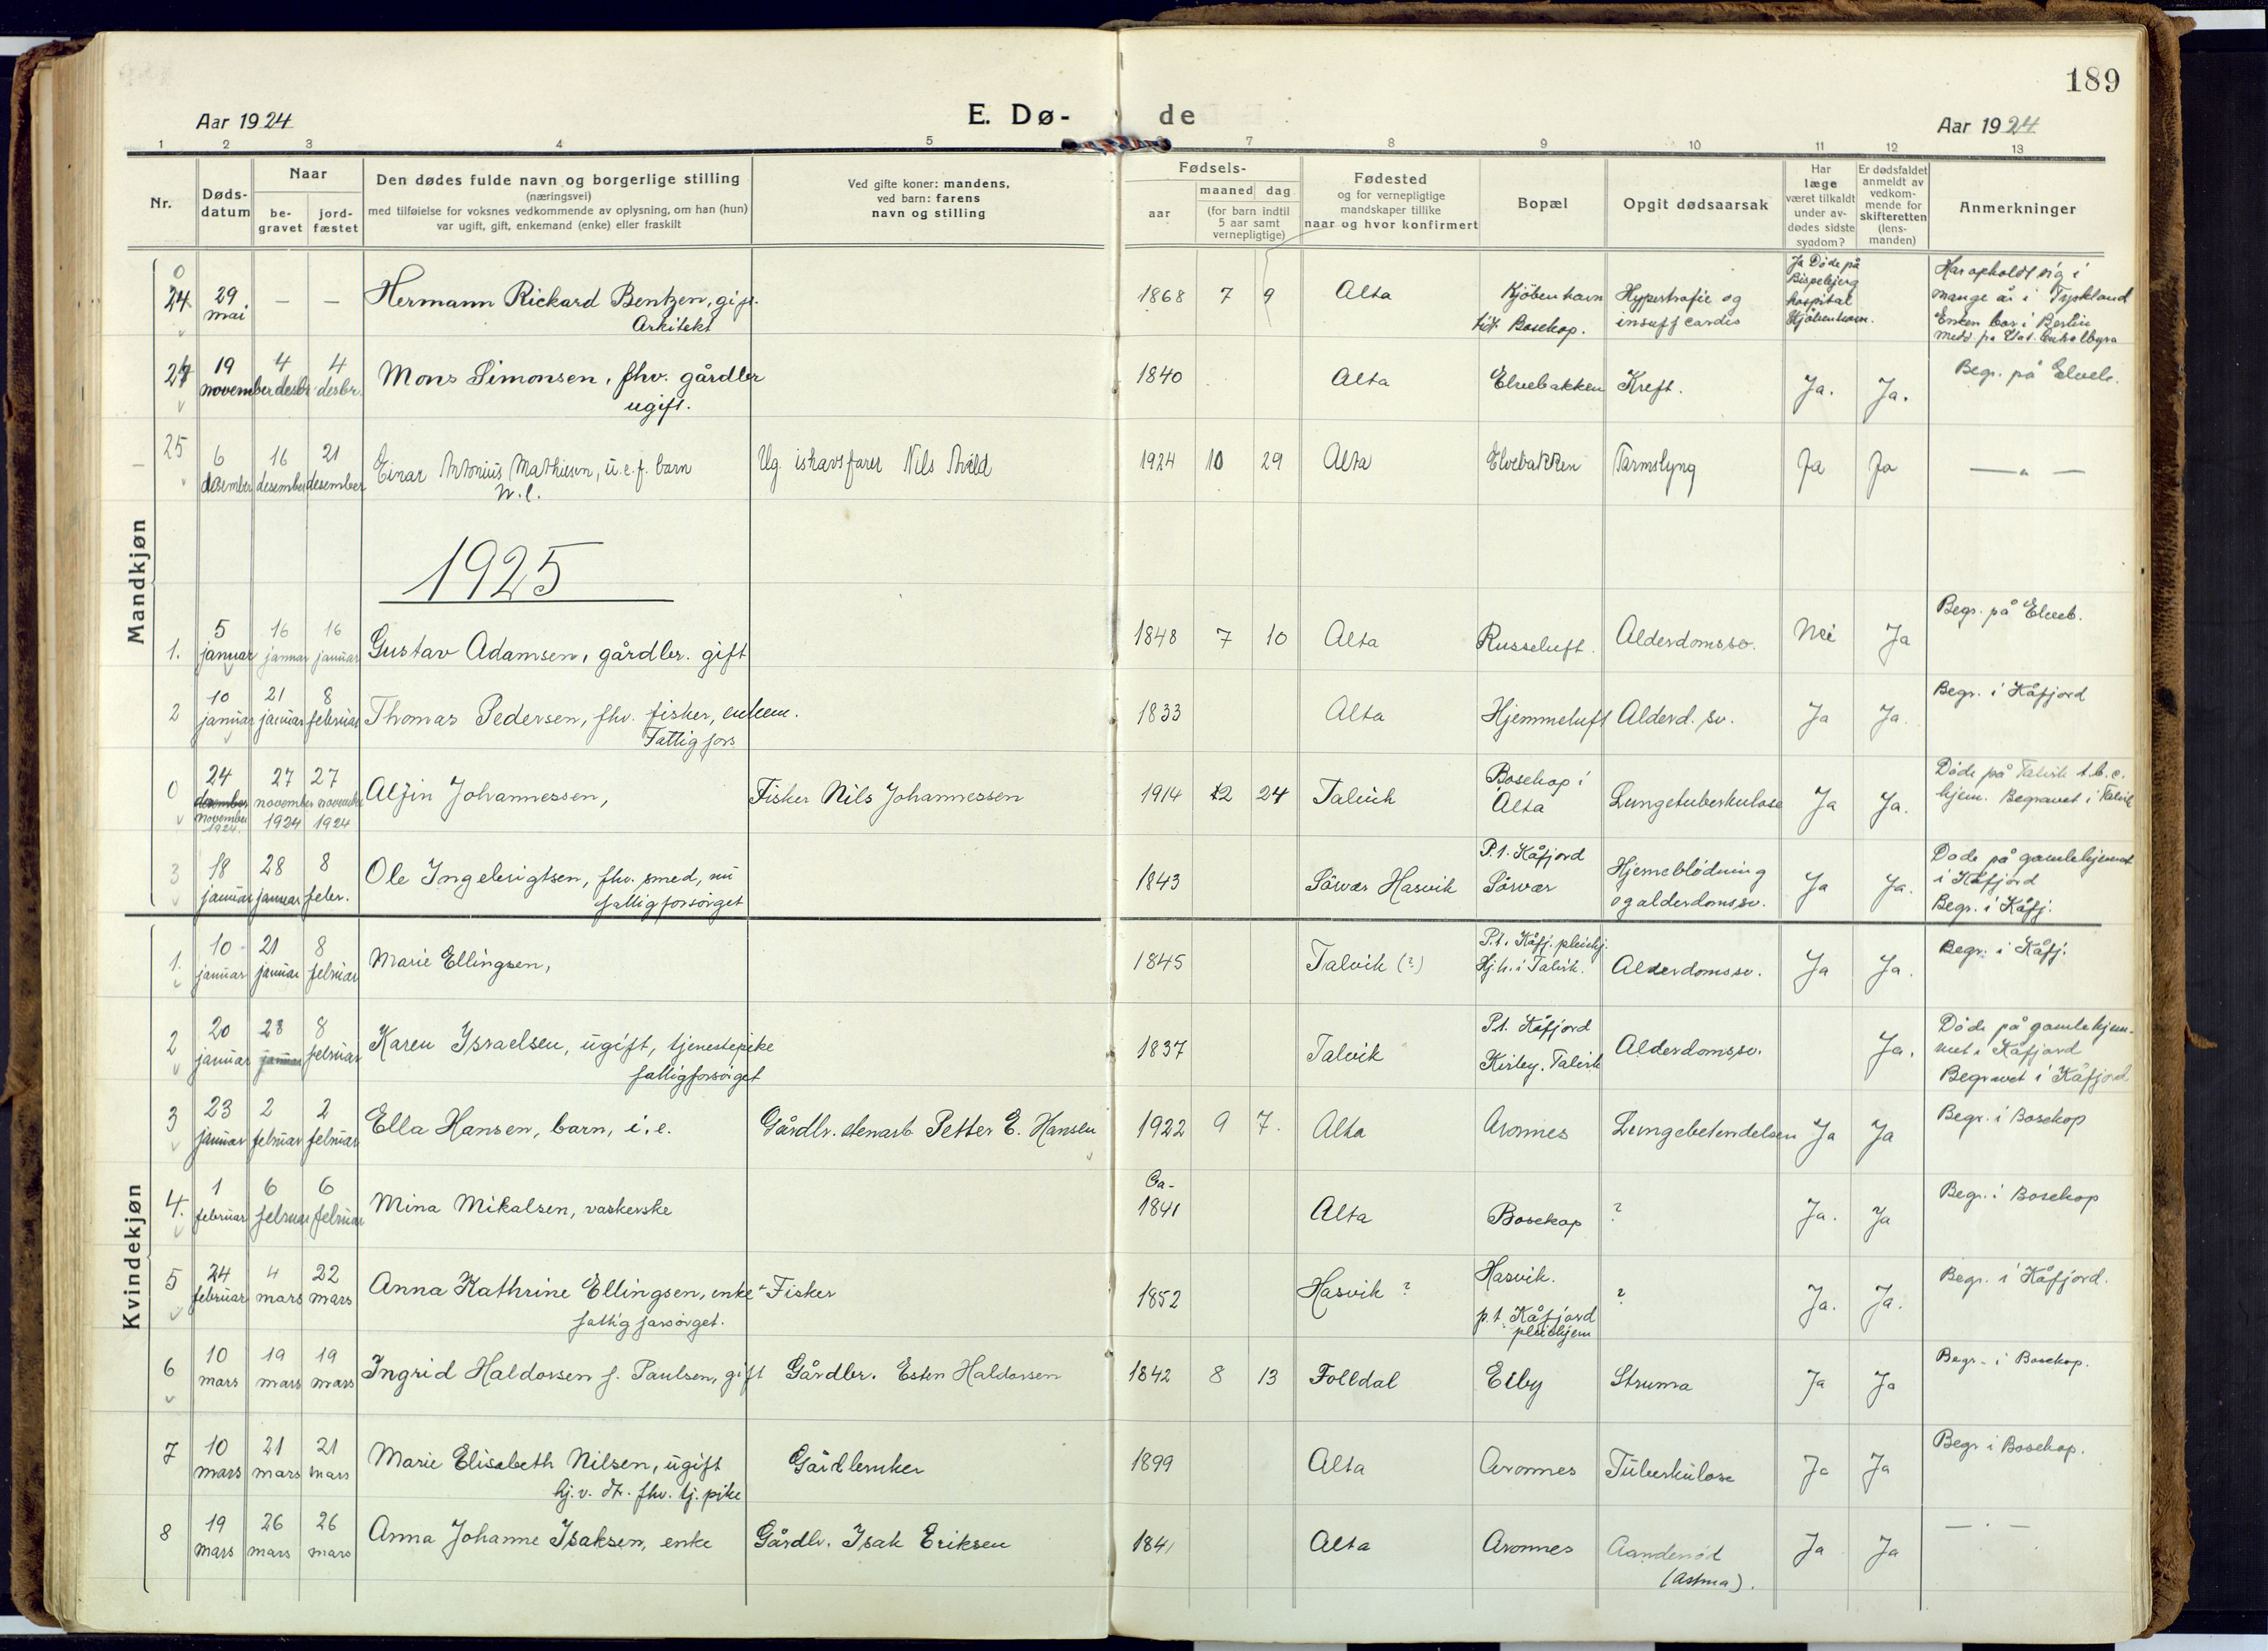 189
Aar 1924
E. Dø-
de
Aar 1924
1 2 3 4 5 6 7 8 9 10 11 12 13
Nr.
Døds-
datum
Naar
be-
gravet
jord-
fæstet
Den dødes fulde navn og borgerlige stilling
(næringsvei)
med tilføielse for voksnes vedkommende av oplysning, om han (hun)
var ugift, gift, enkemand (enke) eller fraskilt
Ved gifte koner: mandens,
ved barn: farens
navn og stilling
Fødsels-
aar
maaned dag
(for barn indtil
5 aar samt
vernepligtige)
Fødested
og for vernepligtige
mandskaper tillike
naar og hvor konfirmert
Bopæl
Opgit dødsaarsak
Har
læge
været tilkaldt
under av-
dødes sidste
sygdom?
Er dødsfaldet
anmeldt av
vedkom-
mende for
skifteretten
(lens-
manden)
Anmerkninger
Mandkjøn
0
24 29 mai — — Hermann Rickard Bentzen, gift.
Arkitekt
1868 7 9 Alta Kjöbenhavn
tidl. Bosekop.
Hypertrofie og
insuff cardis
Ja Döde på
Bispebjerg
hospital
Kjöbenhavn.
Har opholdt sig i
mange år i Tyskland
Enken bor i Berlin
24 19 november 4 desbr 4 desbr. Mons Simonsen, fhv. gårdbr
ugift.
1840 Alta Elvebakken Kreft. Ja. Ja. Begr. på Elveb.
25 6 desember 16 desember 21 desember Einar Antonius Mathisen, u.e.f. barn
Ug. ishavsfarer Nils
1924 10 29 Alta Elvebakken Tarmslyng Ja Ja — " —
1925
1. 5 januar 16 januar 16 januar Gustav Adamsen, gårdbr. gift
1848 7 10 Alta Russeluft. Alderdomssv. Nei Ja Begr. på Elveb.
2 10 januar 21 januar 8 februar Thomas Pedersen, fhv. fisker, enkem.
Fattigfors
1833 Alta Hjemmeluft Alderd. sv. Ja Ja. Begr. i Kåfjord
0 24 desember
november
1924. 27 november 1924 27 november 1924 Alfin Johannessen, Fisker Nils Johannessen
1914 12 24 Talvik Bosekop i
Alta
Lungetuberkulose Ja Ja. Döde på Talvik t.b.c.
hjem. Begravet i Talvik
3 18 januar 28 januar 8 febr. Ole Ingebrigtsen, fhv. smed, nu
fattigforsörget
1843 Sörvær Hasvik P.t. Kåfjord
Sörvær
Hjerneblödning
og alderdomssv. Ja Ja. Döde på gamlehjemmet
i Kåfjord
Begr. i Kåfj.
Kvindekjøn
1. 10 januar 21 januar 8 februar Marie Ellingsen,
1845 Talvik (?) P.t. Kåfj. pleiehj.
Hj.h. i Talvik. Alderdomssv. Ja Ja. Begr. i Kåfj.
2 20 januar 28 januar 8 februar Karen Israelsen, ugift, tjenestepike
fattigforsörget
1837 Talvik P.t. Kåfjord
Kirkby. Talvik Alderdomssv. Ja. Döde på gamlehjem-
met i Kåfjord
Begravet i Kåfjord
3 23 januar 2 februar 2 februar Ella Hansen, barn, i.e. Gårdbr. stenarb Petter E. Hansen
1922 9 7. Alta Aronnes Lungebetendelsen Ja Ja Begr. i Bosekop
4. 1 februar 6 februar 6 februar Mina Mikalsen, vaskerske
Ca-
1841 Alta Bosekop ? Ja. Ja Begr. i Bosekop
5 24 februar 4 mars 22 mars Anna Kathrine Ellingsen, enke - Fisker
fattigforsörget.
1852 Hasvik ? Hasvik.
p.t. Kåfjord
pleiehjem ? Ja. Ja. Begr. i Kåfjord.
6 10 mars 19 mars 19 mars Ingrid Haldorsen f. Paulsen, gift Gårdbr. Esten Haldorsen
1842 8 13 Folldal Eiby Struma Ja Ja Begr. i Bosekop.
7 10 mars 21 mars 21 mars Marie Elisabeth Nilsen, ugift Gårdbruker
hj.v. dtr. fhv. tj. pike
1899 Alta Aronnes Tuberkulose Ja Ja Begr i Bosekop.
8 19 mars 26 mars 26 mars Anna Johanne Isaksen, enke Gårdbr. Isak Eriksen
1841 Alta Aronnes Aandenöd
(Astma). Ja Ja — " —